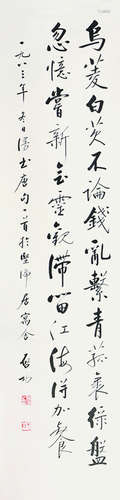 烏菱白芡不論錢亂繫青菰裹綠盤
忽憶嘗新會靈觀滯留江海得加餐
一九八三年冬日漫書唐句一首於堅淨居寓舍 啟功